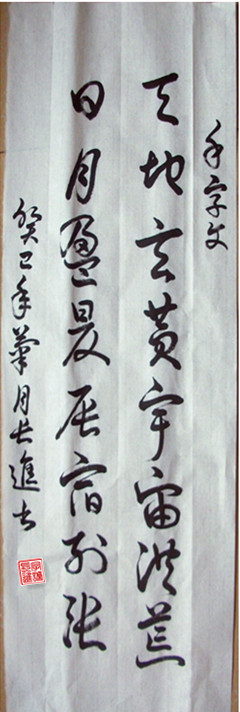 千字文
天地玄黄宇宙洪荒
日月盈昃辰宿列張
癸巳年菊月長進書